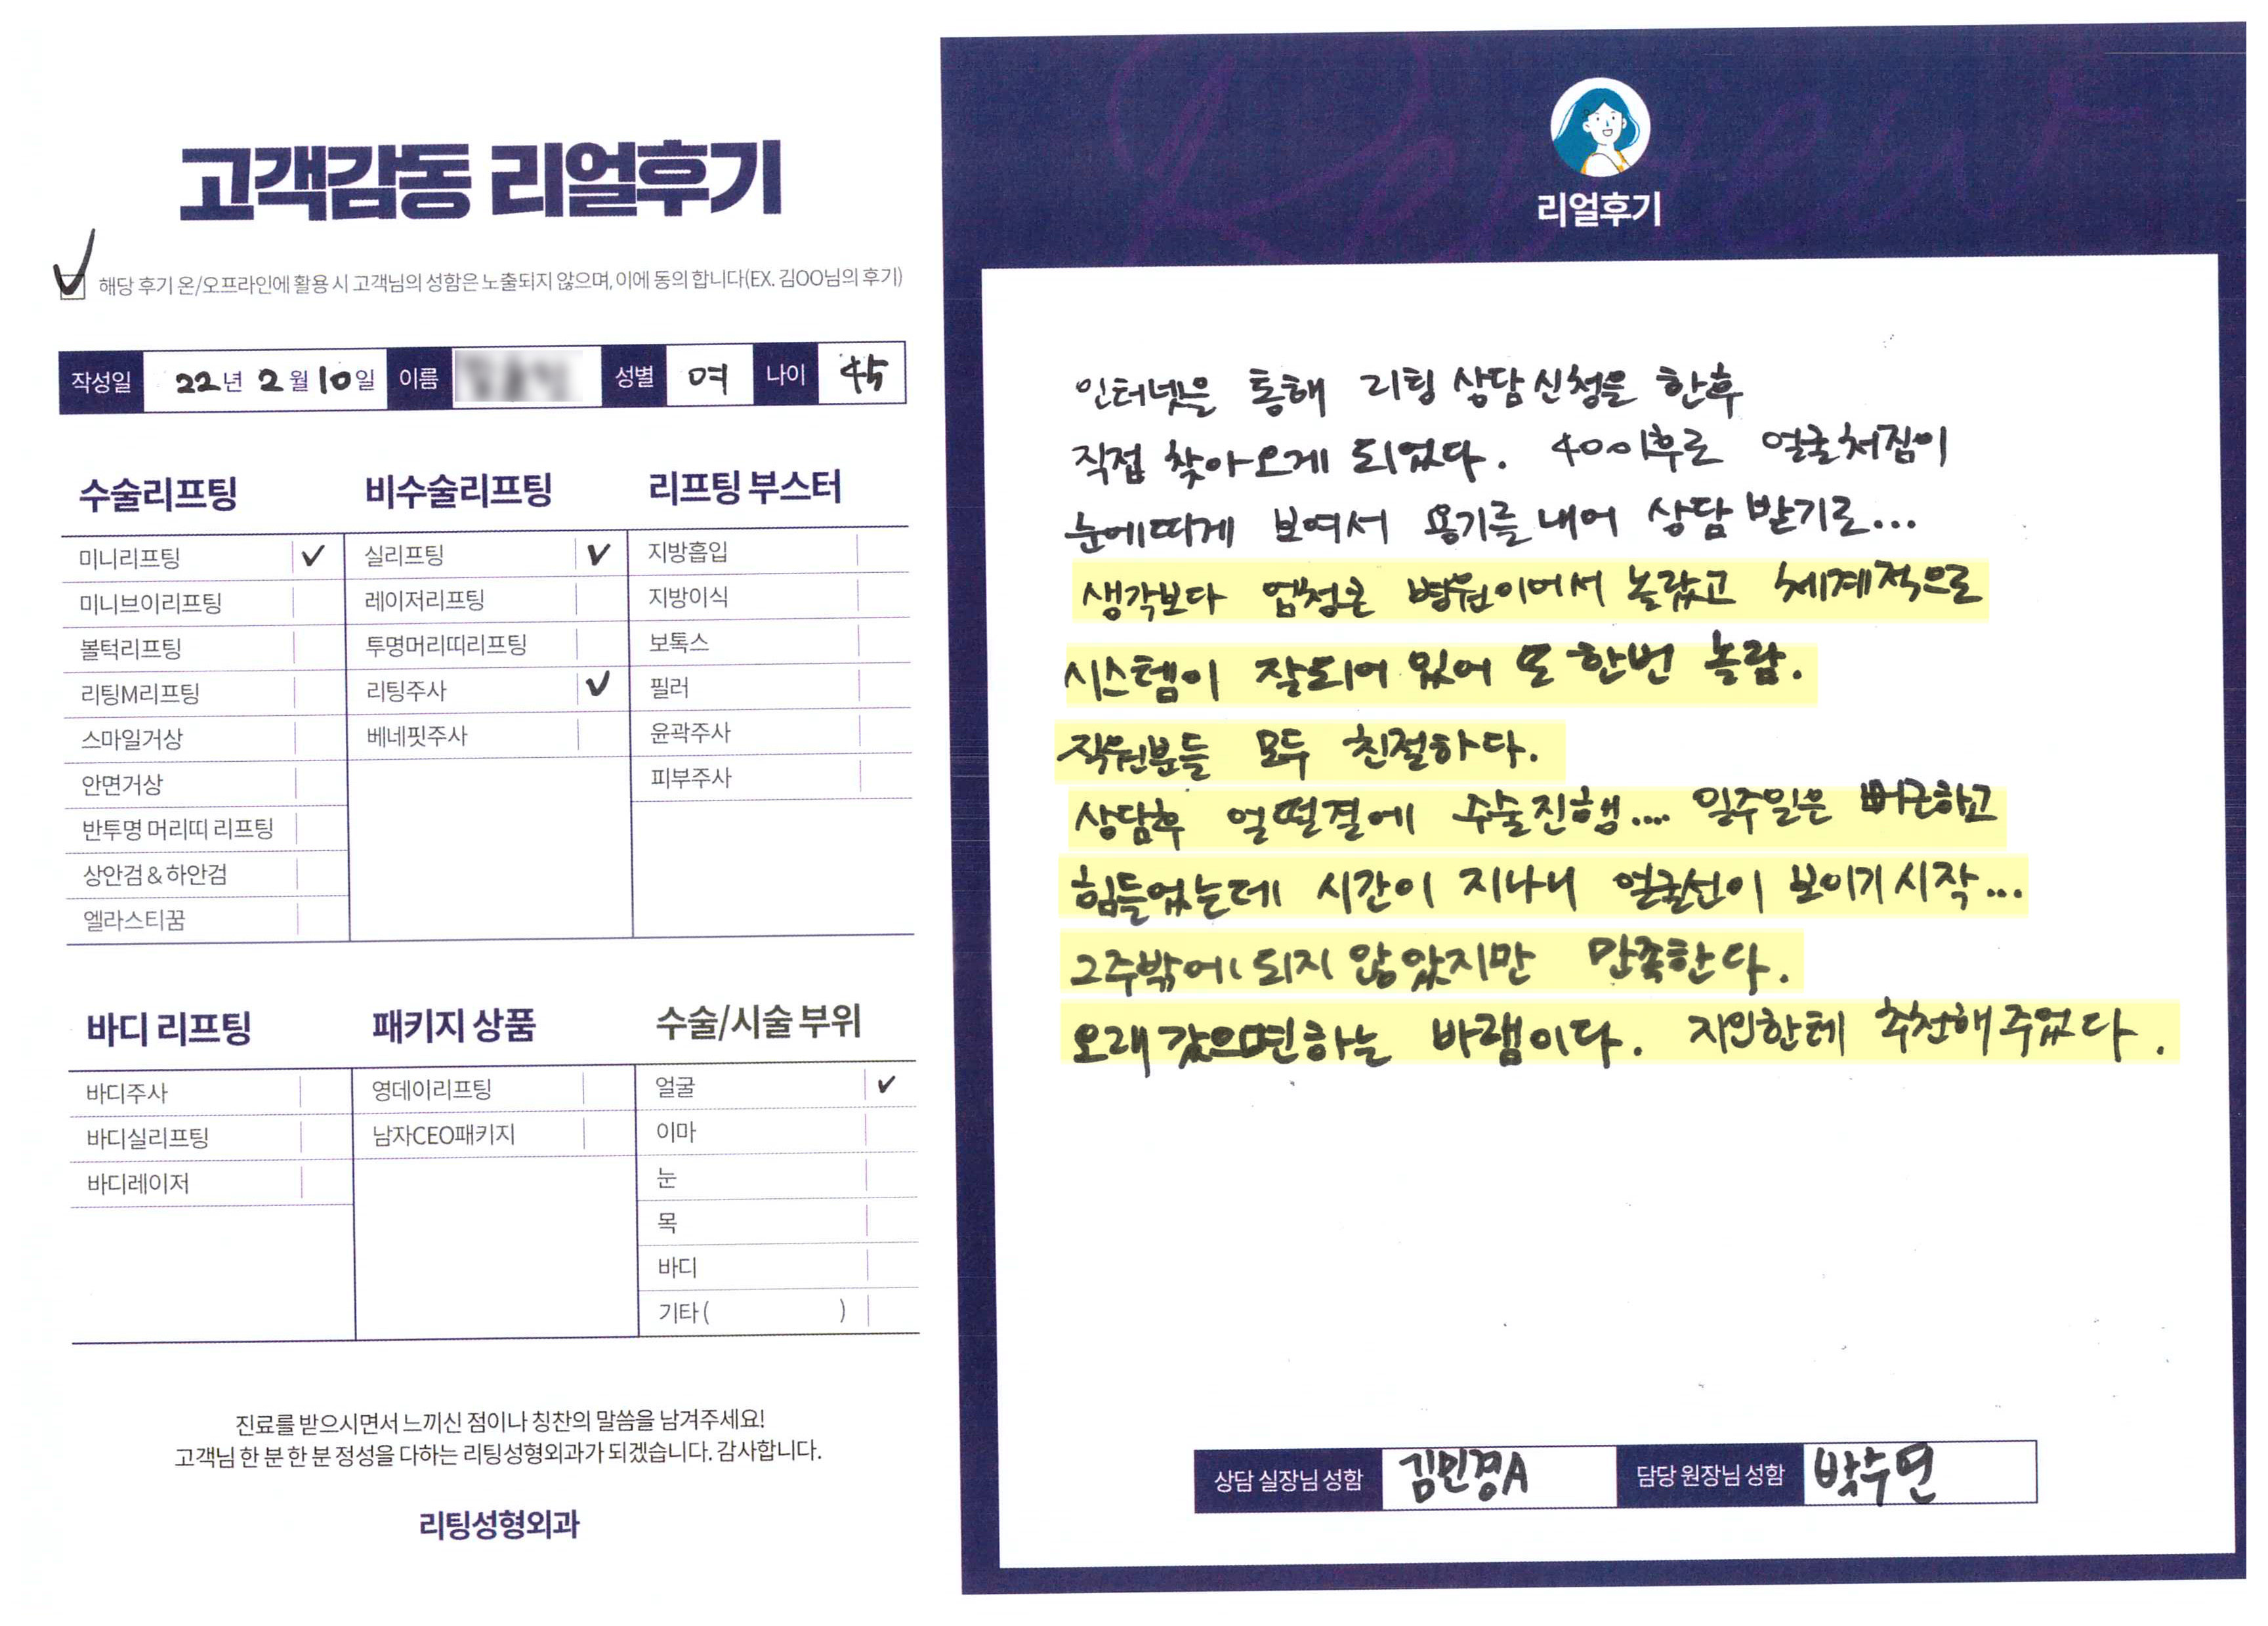 고객감동 리얼후기
해당 후기 온/오프라인에 활용 시 고객님의 성함은 노출되지 않으며, 이에 동의 합니다(EX. 김OO님의 후기)
작성일 22년 2월 10일 이름 성별 여 나이 45
수술리프팅
미니리프팅
미니브이리프팅
볼턱리프팅
리팅M리프팅
스마일거상
안면거상
반투명 머리띠 리프팅
상안검 & 하안검
엘라스티꿈
비수술리프팅
실리프팅
레이저리프팅
투명머리띠리프팅
리팅주사
베네핏주사
리프팅 부스터
지방흡입
지방이식
보톡스
필러
윤곽주사
피부주사
바디 리프팅
바디주사
바디실리프팅
바디레이저
패키지 상품
영데이리프팅
남자CEO패키지
수술/시술 부위
얼굴
이마
눈
목
바디
기타 ( )
진료를 받으시면서 느끼신 점이나 칭찬의 말씀을 남겨주세요!
고객님 한 분 한 분 정성을 다하는 리팅성형외과가 되겠습니다. 감사합니다.
리팅성형외과
Review
리얼후기
인터넷을 통해 리팅 상담신청을 한후
직접 찾아오게 되었다. 40이후로 얼굴처짐이
눈에띠게 보여서 용기를 내어 상담 받기로...
생각보다 엄청큰 병원이여서 놀랐고 체계적으로
시스템이 잘되어 있어 또 한번 놀람.
직원분들 모두 친절하다.
상담후 얼떨결에 수술진행.... 일주일은 뻐근하고
힘들었는데 시간이 지나니 얼굴선이 보이기 시작...
2주밖에 되지 않았지만 만족한다.
오래 갔으면하는 바램이다. 지인한테 추천해 주었다.
상담 실장님 성함 김민경A 담당 원장님 성함 박수연